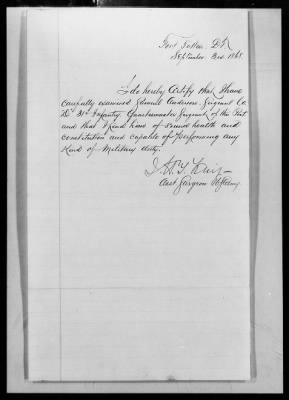 Fort Totten, D.T.
September 3rd 1868.
I do hereby Certify that I have
carefully examined Edmund Anderson, Sergeant Co.
"D" 31st Infantry, Quartermaster Sergeant of the Post
and that I find him of sound health and
constitution and capable of performing any
Kind of Military duty.
Asst Surgeon U.S. Army